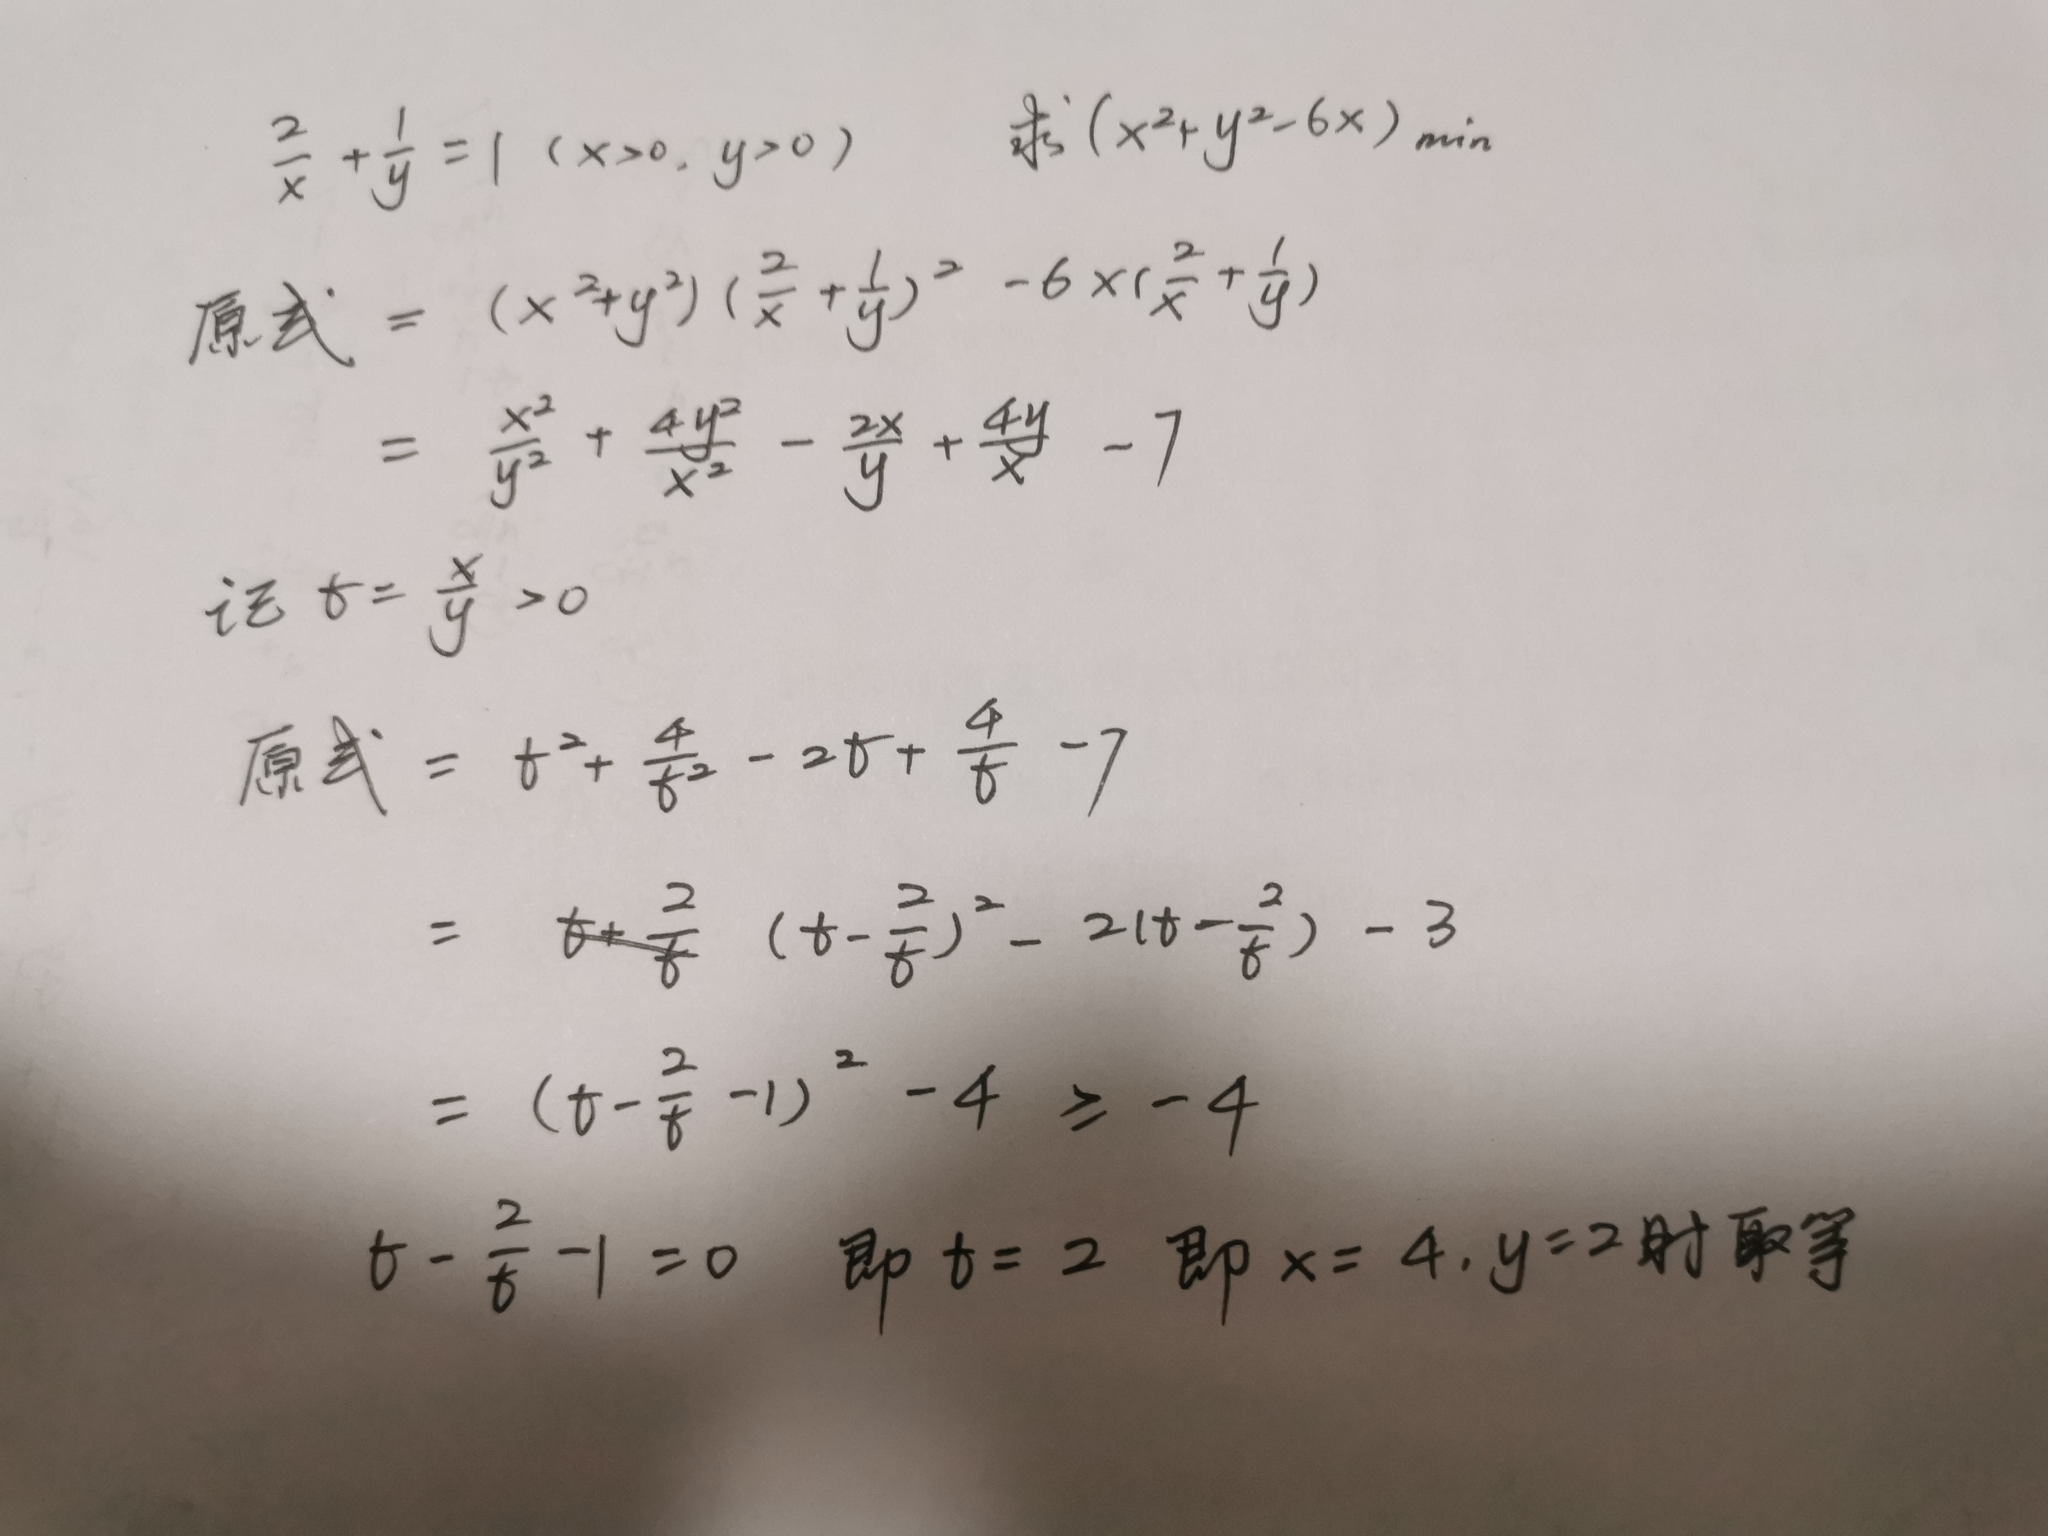 2/x + 1/y = 1 (x>0, y>0) 求(x²+y²-6x) min
原式 = (x²+y²)(2/x + 1/y)² - 6x(2/x + 1/y)
= x²/y² + 4y²/x² - 2x/y + 4y/x - 7
记 t = x/y > 0
原式 = t² + 4/t² - 2t + 4/t - 7
= t + 2/t (t - 2/t)² - 2(t - 2/t) - 3
= (t - 2/t - 1)² - 4 ≥ -4
t - 2/t - 1 = 0 即 t = 2 即 x = 4, y = 2 时取等